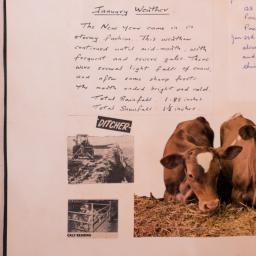 January Weather.
The New Year came in in
stormy fashion. This weather
continued until mid-month, with
frequent and severe gales. There
were several light falls of snow,
and after some sharp frosts
the month ended bright and cold.
Total Rainfall 1·85 inches
Total Snowfall 1½ inches
DITCHER
CALF REARING
as
Jan